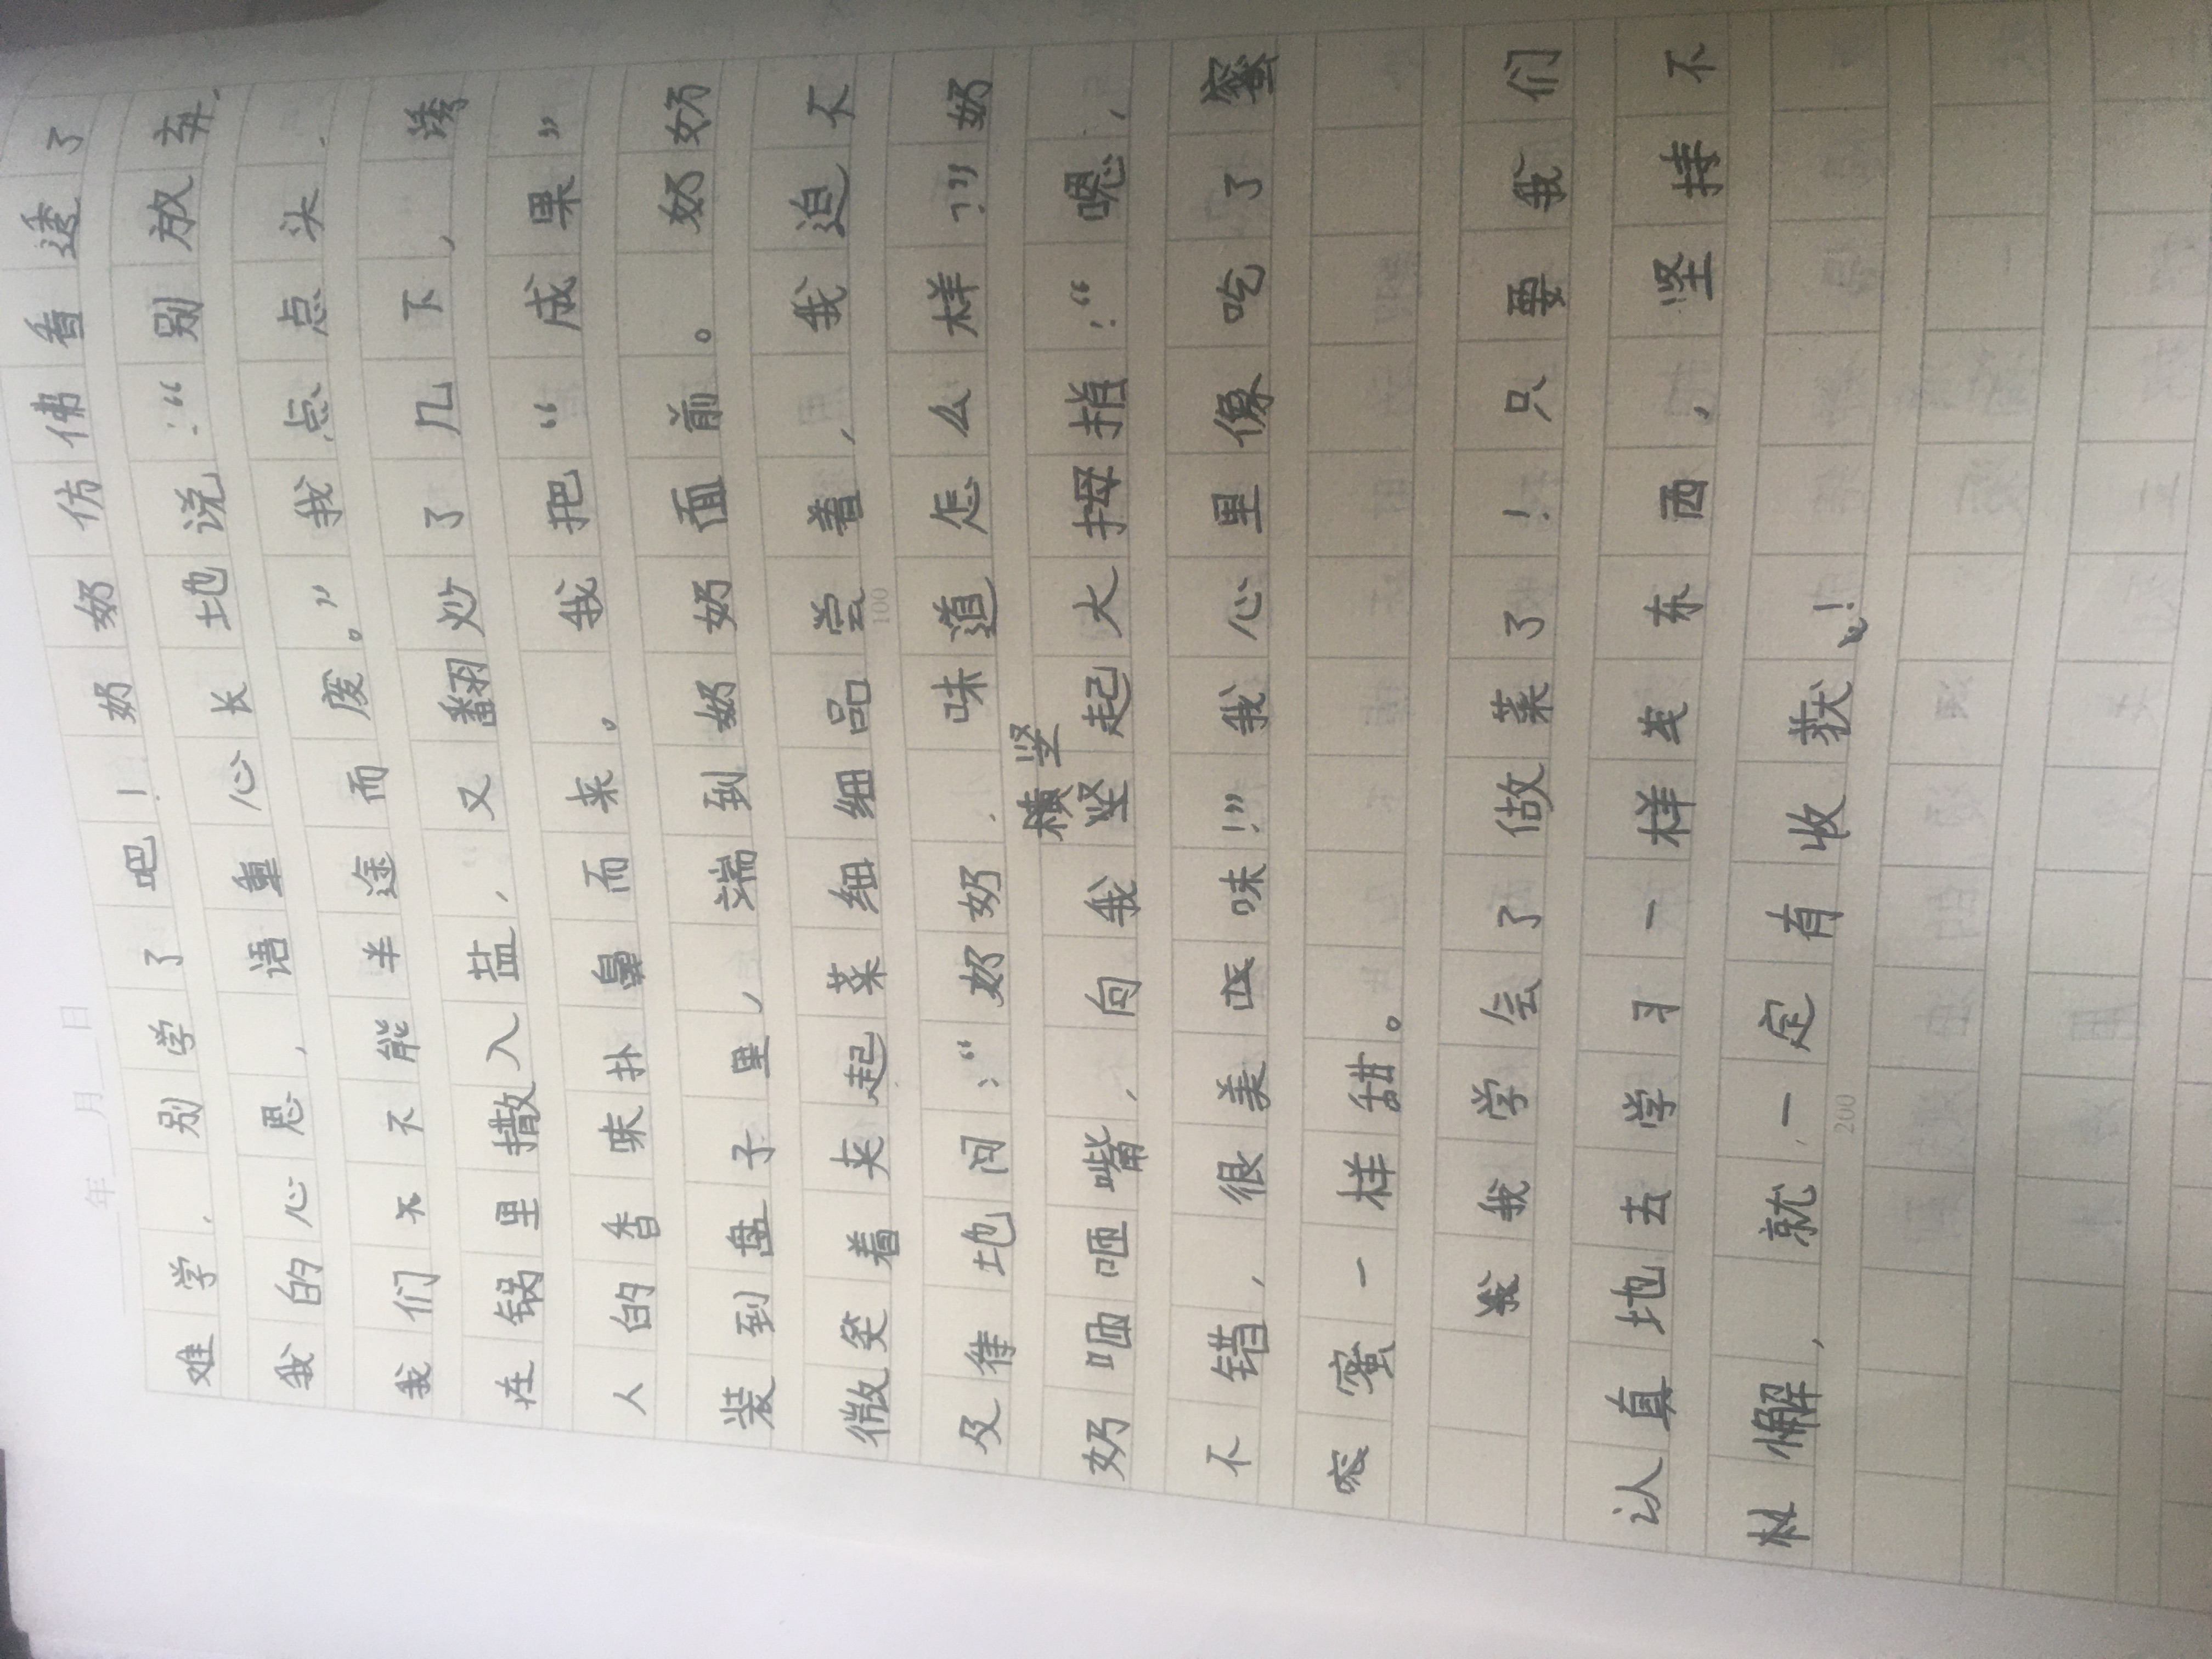 年 月 日
难学,别学了吧!奶奶仿佛看透了
我的心思,语重心长地说:“别放弃,
我们不能半途而废。”我点点头,
在锅里撒入盐,又翻炒了几下,诱
人的香味扑鼻而来。我把“成果”
装到盘子里,端到奶奶面前。奶奶
微笑着夹起菜细细品尝着,我迫不
100
及待地问:“奶奶,味道怎么样?”奶
横竖
奶咂咂嘴,向我竖起大拇指:“嗯,
不错,很美味!”我心里像吃了蜜
蜜一样甜。
我学会了做菜了!只要我们
认真地去学习一样东西,坚持不
懈,就一定有收获!
200